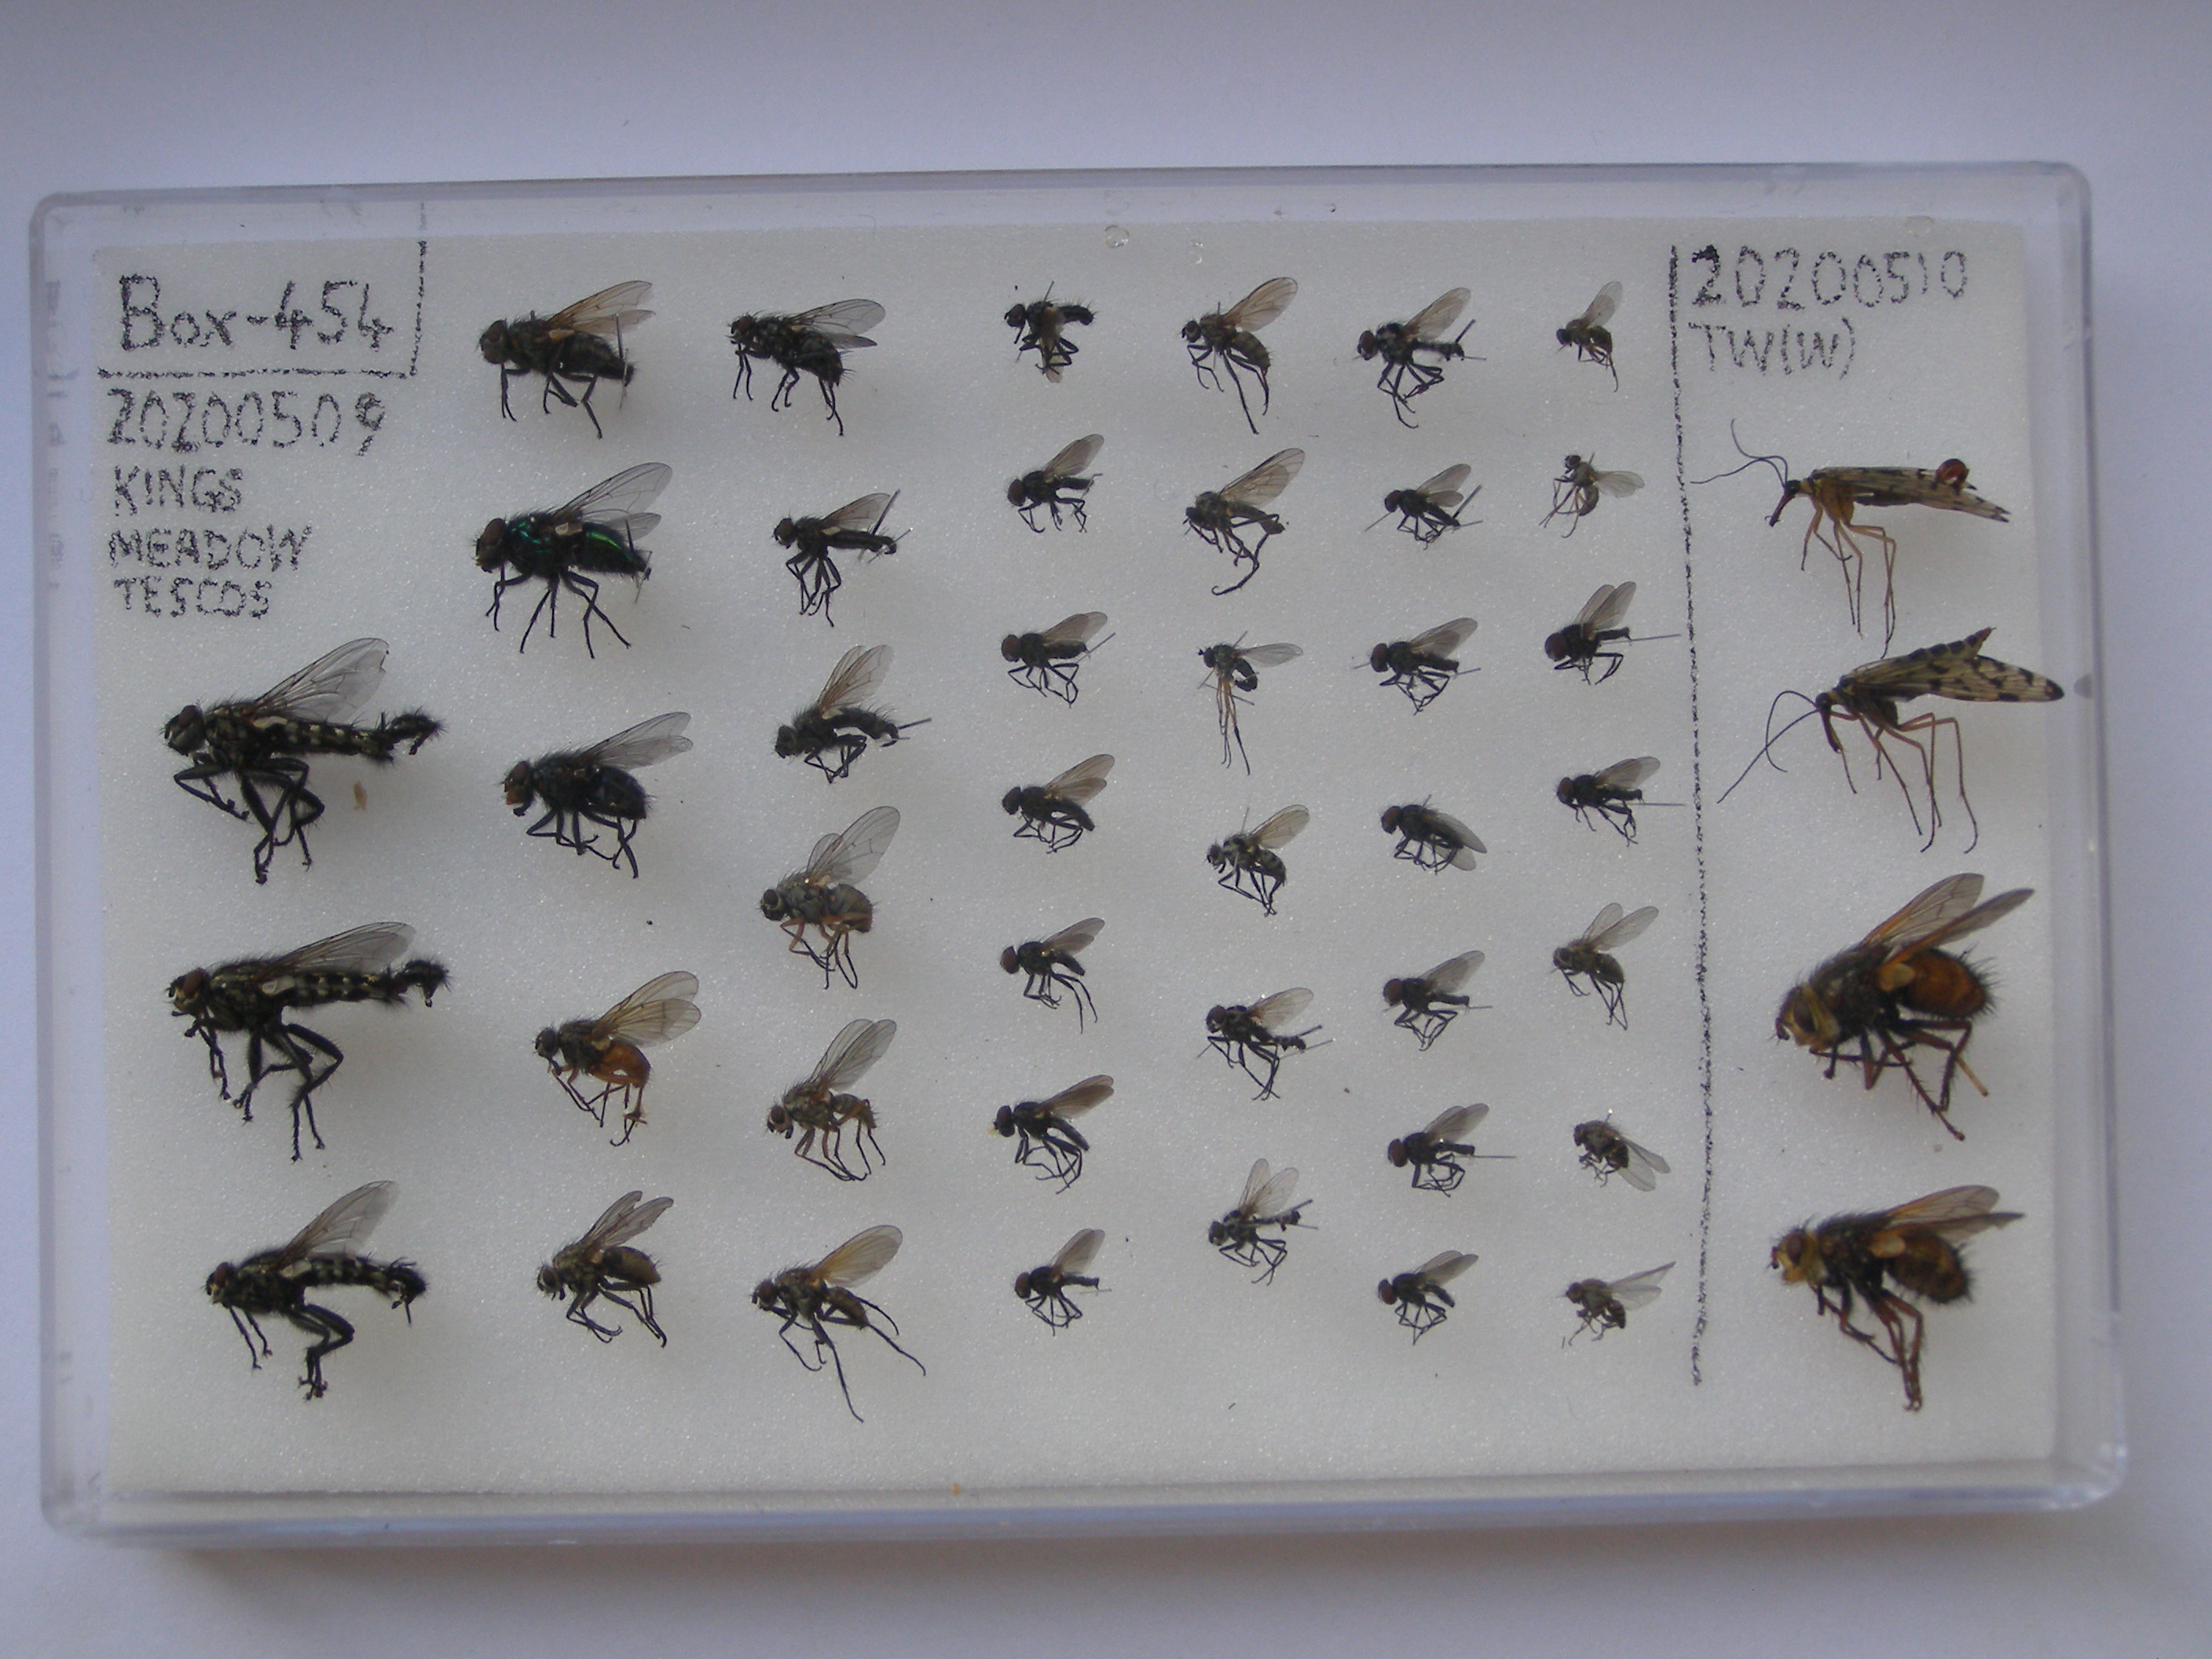 Box-454
20200509
KINGS
MEADOW
TESCOS
20200510
TW(W)